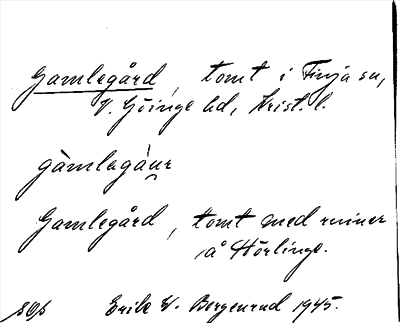 Gamlegård, tomt i Finja sn,
V. Göinge hd, Krist. l.
gàmlegàu̯r
Gamlegård, tomt med ruiner
å Hörlinge.
Erik W. Bergenrud 1945.